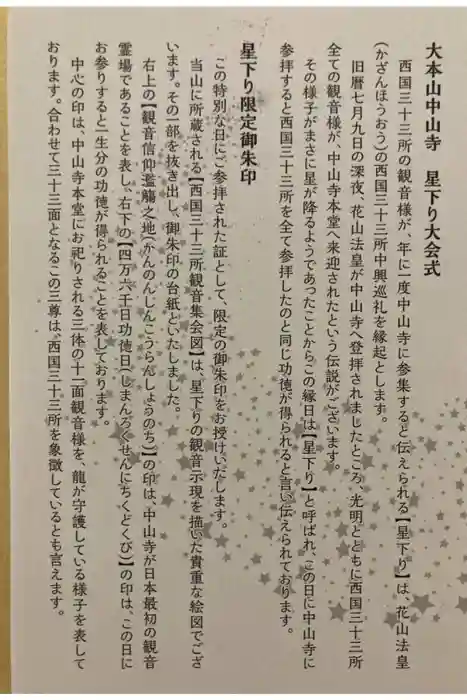 大本山中山寺　星下り大会式
西国三十三所の観音様が、年に一度中山寺に参集すると伝えられる【星下り】は、花山法皇
(かざんほうおう)の西国三十三所中興巡礼を縁起とします。
旧暦七月九日の深夜、花山法皇が中山寺へ登拝されましたところ、光明とともに西国三十三所
全ての観音様が、中山寺本堂へ来迎されたという伝説がございます。
その様子がまさに星が降るようであったことからこの縁日は【星下り】と呼ばれ、この日に中山寺に
参拝すると西国三十三所を全て参拝したのと同じ功徳が得られると言い伝えられております。
星下り限定御朱印
この特別な日にご参拝された証として、限定の御朱印をお授けいたします。
当山に所蔵される【西国三十三所観音集会図】は、星下りの観音示現を描いた貴重な絵図でござ
います。その一部を抜き出し、御朱印の台紙といたしました。
右上の【観音信仰濫觴之地(かんのんじんこうらんしょうのち)】の印は、中山寺が日本最初の観音
霊場であることを表し、右下の【四万六千日功徳日(しまんろくせんにちくどくび)】の印は、この日に
お参りすると一生分の功徳が得られることを表しております。
中心の印は、中山寺本堂にお祀りされる三体の十一面観音様を、龍が守護している様子を表して
おります。合わせて三十三面となるこの三尊は、西国三十三所を象徴しているとも言えます。